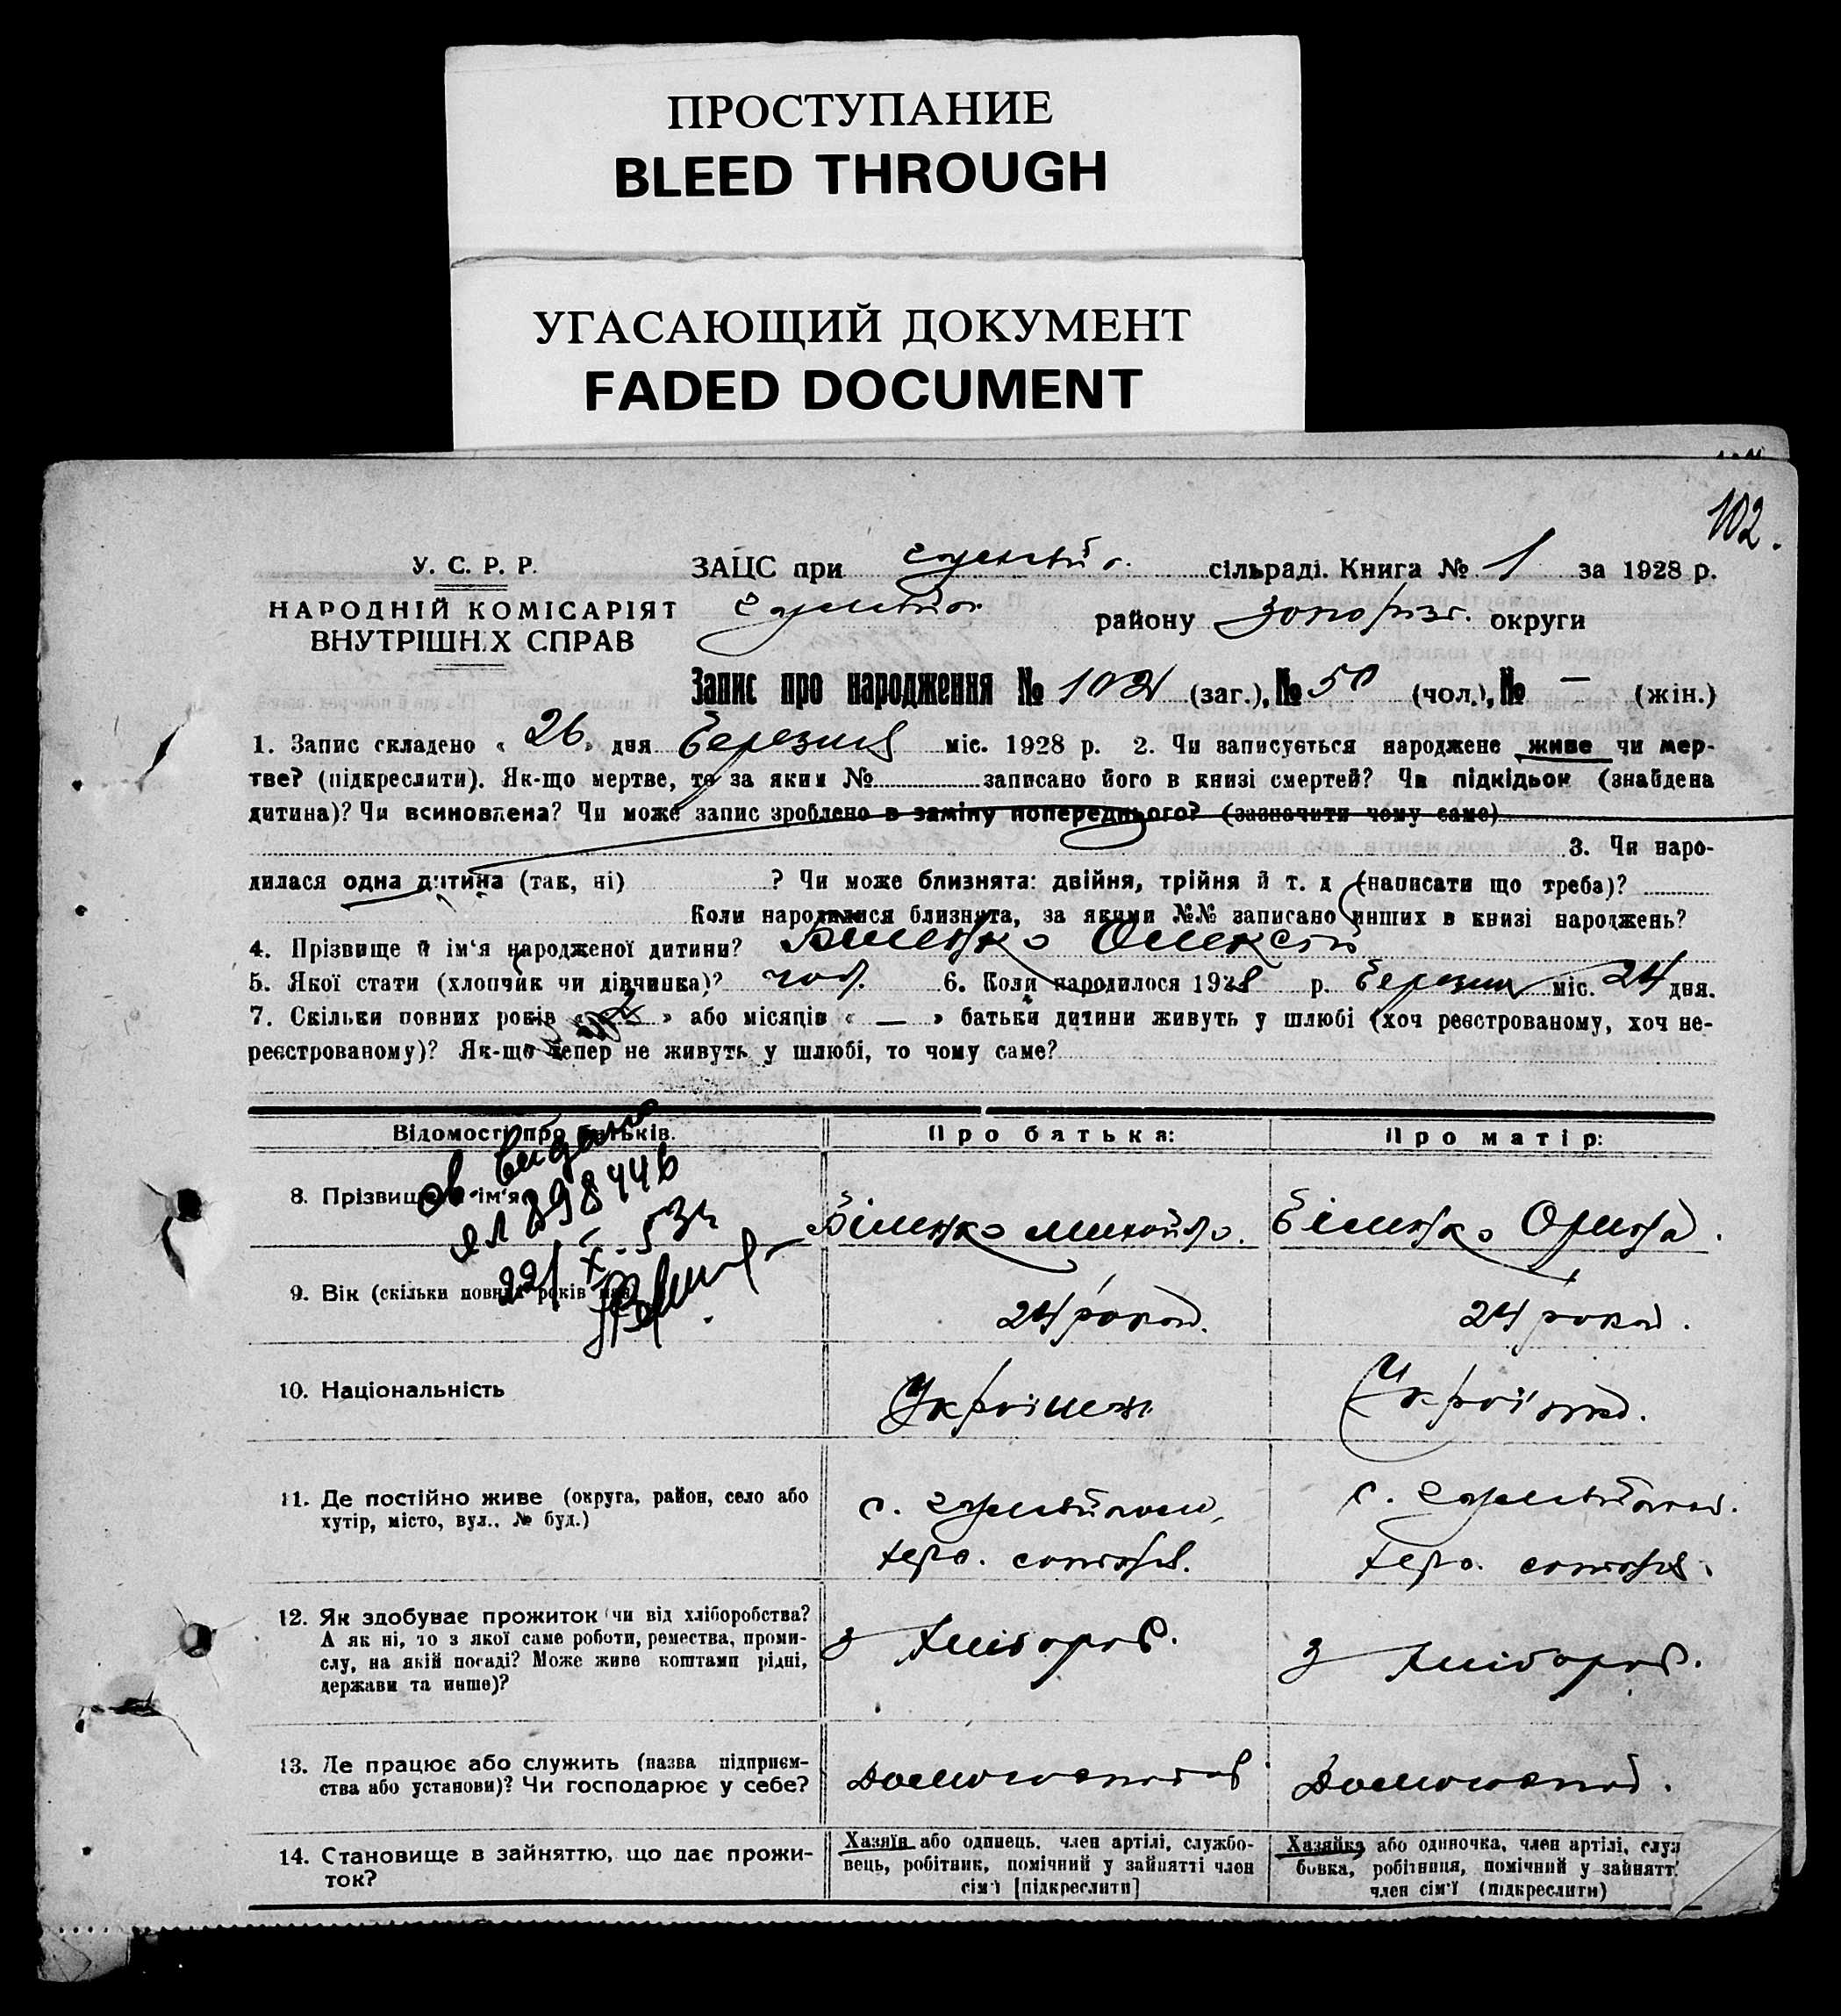 ПРОСТУПАНИЕ
BLEED THROUGH
УГАСАЮЩИЙ ДОКУМЕНТ
FADED DOCUMENT
102.
У. С. Р. Р.
НАРОДНІЙ КОМІСАРІЯТ
ВНУТРІШНІХ СПРАВ
ЗАЦС при сільраді. Книга № 1 за 1928 р.
району округи
Запис про народження № 102 (заг.), № 50 (чол.), № — (жін.)
1. Запис складено « 26 » дня Березня міс. 1928 р. 2. Чи записується народжене живе чи мер-
тве? (підкреслити). Як-що мертве, то за яким № записано його в книзі смертей? Чи підкідьок (знайдена
дитина)? Чи всиновлена? Чи може запис зроблено в заміну попереднього? (зазначити чому саме)
3. Чи наро-
дилася одна дитина (так, ні) ? Чи може близнята: двійня, трійня й т. д (написати що треба)?
Коли народилися близнята, за якими №№ записано инших в книзі народжень?
4. Прізвище й ім'я народженої дитини? Біленко Олексій
5. Якої стати (хлопчик чи дівчинка)? чол. 6. Коли народилося 1928 р. Березня міс. 24 дня.
7. Скільки повних років « 2 » або місяців « — » батьки дитини живуть у шлюбі (хоч реєстрованому, хоч не-
реєстрованому)? Як-що тепер не живуть у шлюбі, то чому саме?
Відомості про батьків.
Про батька:
Про матір:
св видано
ЯЛ 898446
22/X-53р
8. Прізвище й ім'я
Біленко Михайло.
Біленко Орина.
9. Вік (скільки повних років має)
24 роки.
24 роки.
10. Національність
Українець
Українка.
11. Де постійно живе (округа, район, село або
хутір, місто, вул., № буд.)
12. Як здобуває прожиток (чи від хліборобства?
А як ні, то з якої саме роботи, ремества, проми-
слу, на якій посаді? Може живе коштами рідні,
держави та инше)?
З хлібороб.
З хлібороб.
13. Де працює або служить (назва підприєм-
ства або установи)? Чи господарює у себе?
Домогоспод
Домогоспод.
14. Становище в зайняттю, що дає прожи-
ток?
Хазяїн або одинець, член артілі, службо-
вець, робітник, помічний у зайнятті член
сім'ї [підкреслити]
Хазяйка або одиночка, член артілі, служ
бовка, робітниця, помічний у зайнятті
член сім'ї (підкреслити)